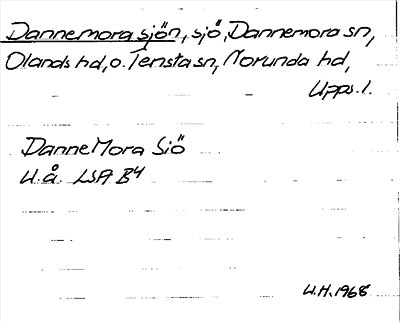 Dannemorasjön, sjö, Dannemora sn,
Olands hd, o. Tensta sn, Norunda hd,
Upps. l.
DanneMora Siö
U.å. LSA B4
U.H. 1968